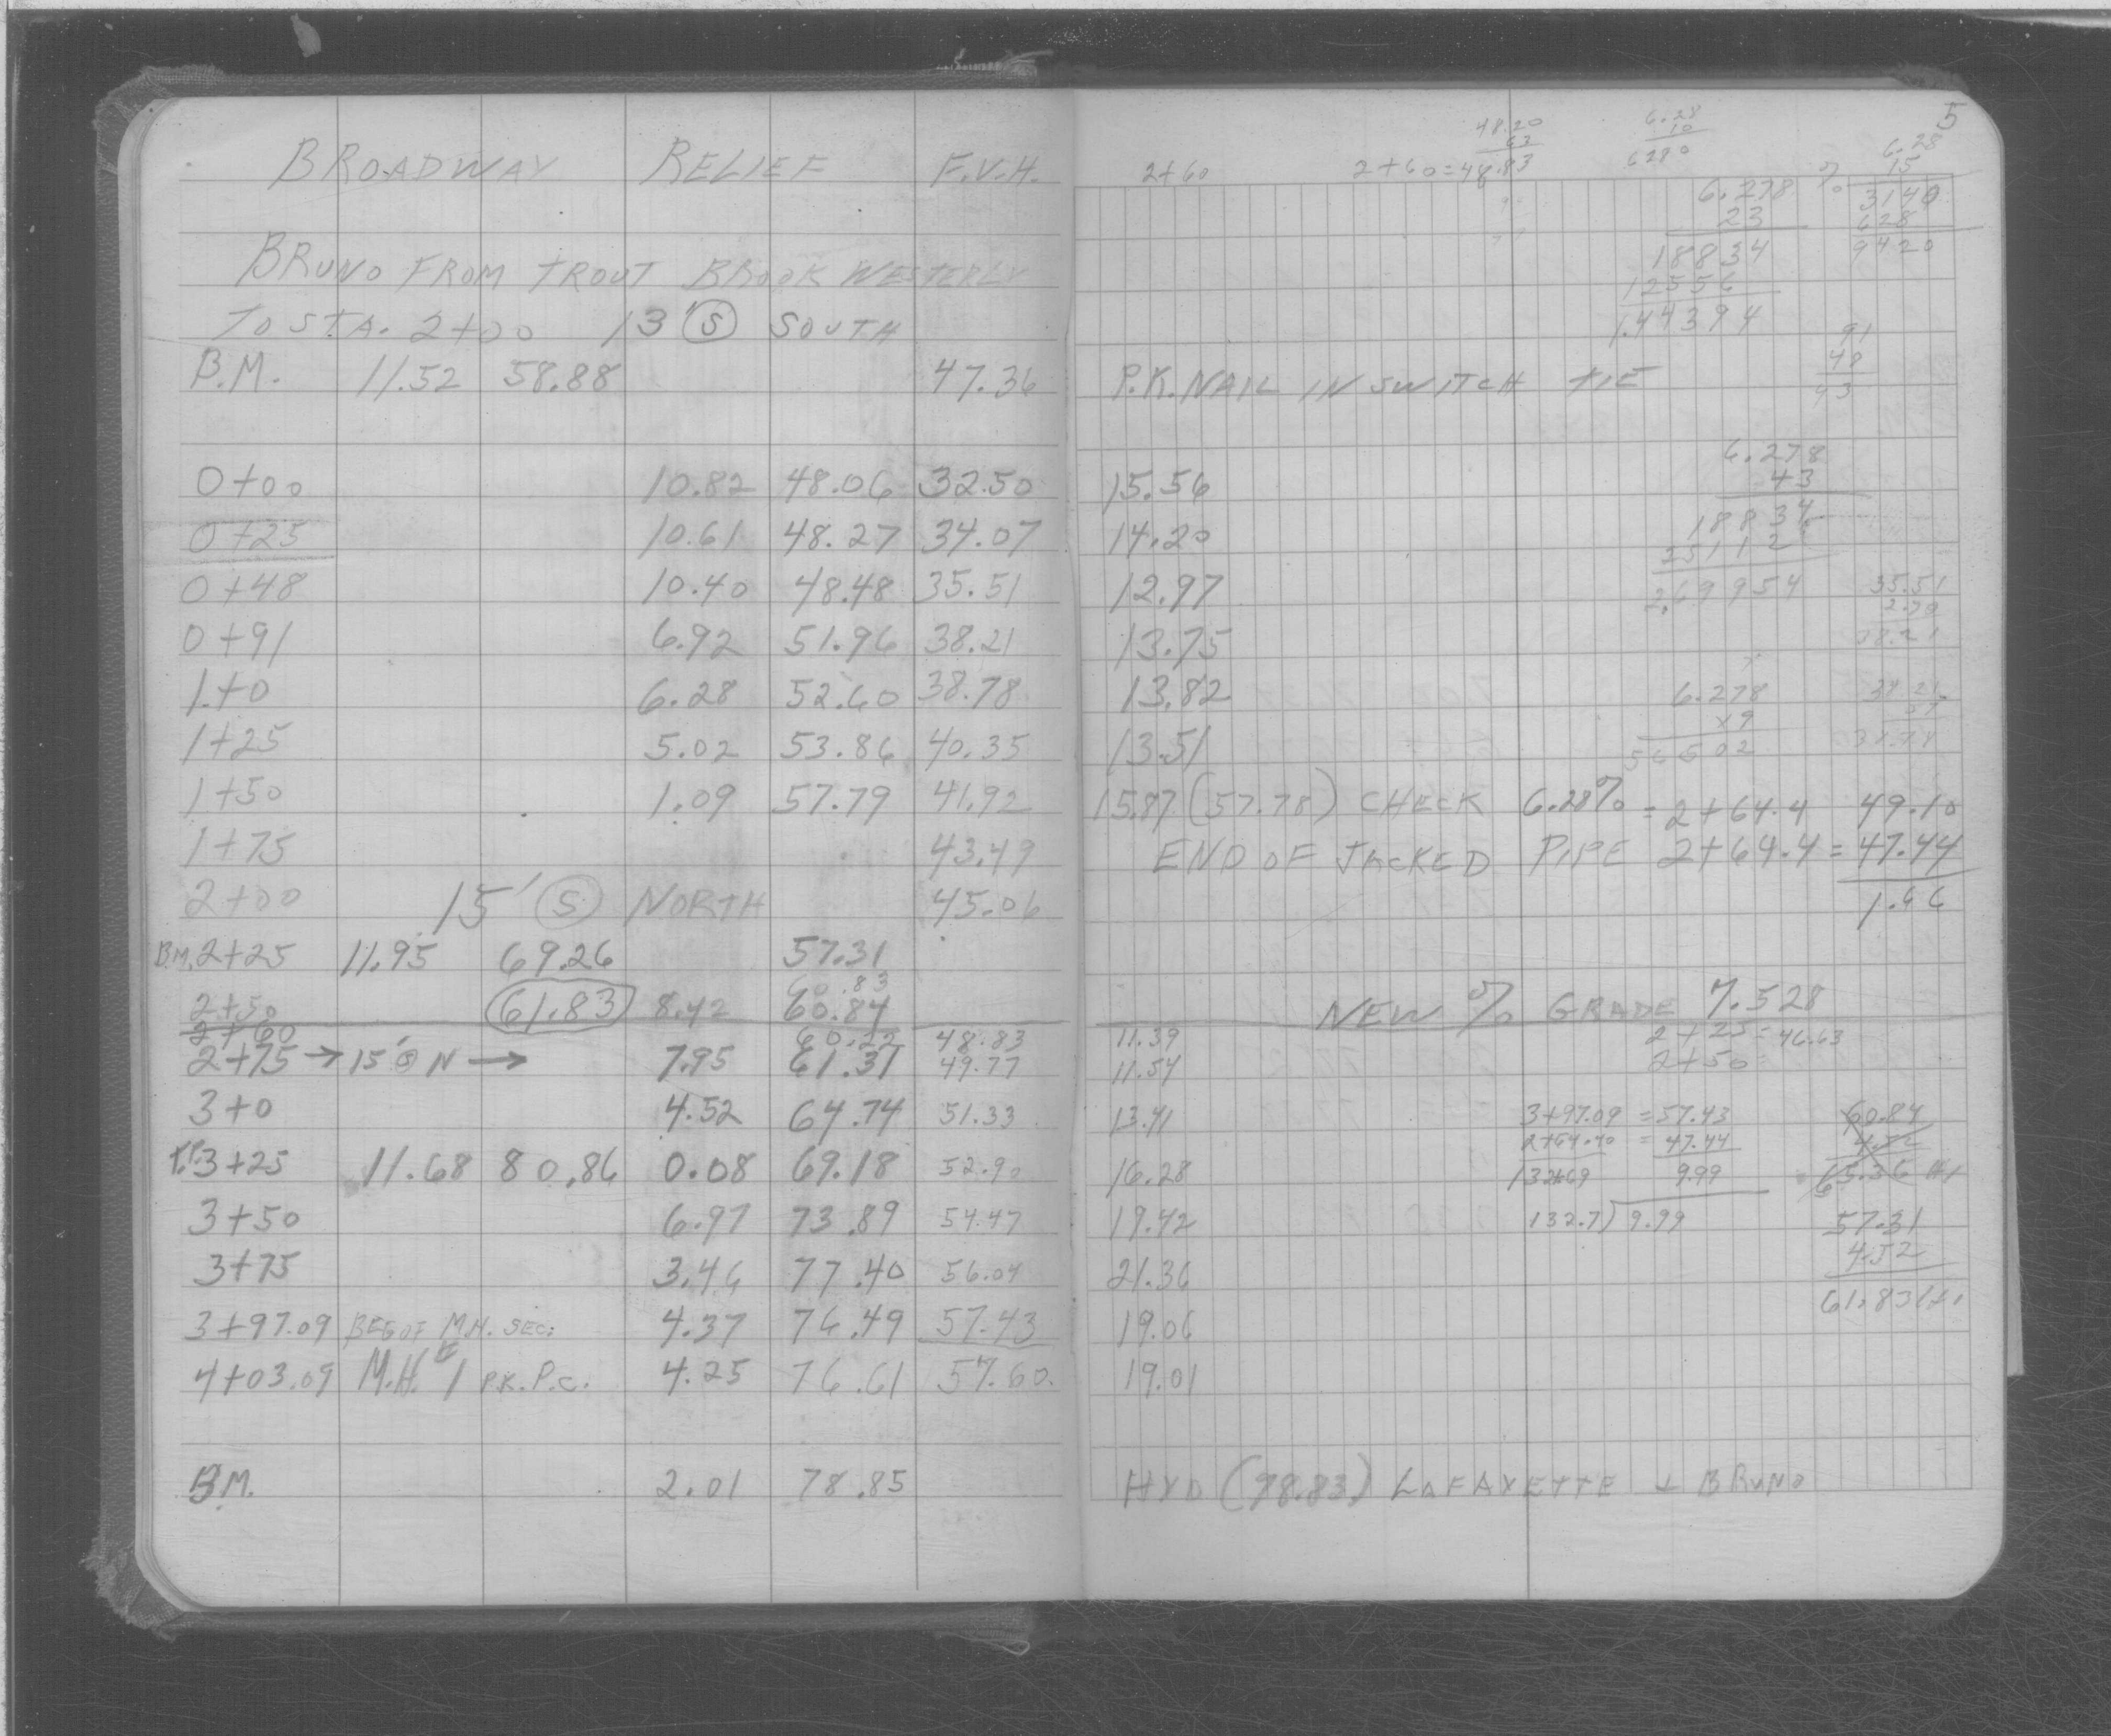 BROADWAY RELIEF F.V.H.
BRUNO FROM TROUT BROOK WESTERLY
TO STA. 2+00 13' S SOUTH
B.M. 11.52 58.88 47.36
0+00 10.82 48.06 32.50
0+25 10.61 48.27 34.07
0+48 10.40 48.48 35.51
0+91 6.92 51.96 38.21
1+0 6.28 52.60 38.78
1+25 5.02 53.86 40.35
1+50 1.09 57.79 41.92
1+75 43.49
2+00 15' S NORTH 45.06
B.M. 2+25 11.95 69.26 57.31
60.83
2+50 61.83 8.42 60.84
2+60 60.22 48.83
2+75 → 15' S N → 7.95 61.31 49.77
3+0 4.52 64.74 51.33
T.P. 3+25 11.68 80.86 0.08 69.18 52.90
3+50 6.97 73.89 54.47
3+75 3.46 77.40 56.04
3+97.09 BEG OF M.H. SEC. 4.37 76.49 57.43
4+03.09 M.H. 1 P.K. P.C. 4.25 76.61 57.60
B.M. 2.01 78.85
5
2+60
48.20
63
2+60=48.83
6.28
10
6280
6.28
15
3140
628
9420
%
6.278
23
18834
12556
1.44394
91
48
43
P.K. NAIL IN SWITCH TIE
15.56
14.20
12.97
13.75
13.82
13.51
6.278
43
18834
25112
2.69954
35.51
2.70
38.21
6.278
x9
56502
15.87 (57.78) CHECK 6.28% = 2+64.4 49.10
END OF JACKED PIPE 2+64.4 = 47.44
1.66
NEW % GRADE 7.528
11.39
2+25 = 46.63
11.54
2+50
13.41
16.28
19.42
21.36
19.06
19.01
3+97.09 = 57.43
2+64.40 = 47.44
132.69 9.99
132.7)9.99
60.84
4.52
65.36 HI
57.31
4.52
61.83 HI
HYD (78.83) LAFAYETTE + BRUNO